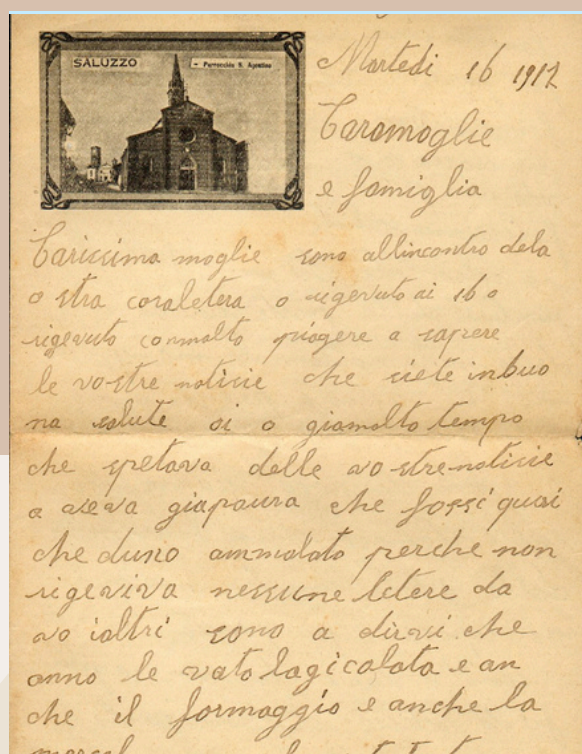 SALUZZO
- Parrocchia S. Agostino
Martedi 16 1912
Caramoglie
e famiglia
Carissima moglie sono allincontro dela
vo stra caraletera o rigevuto ai 16 o
rigevuto conmolto piagere a sapere
le vo stre notisie che siete inbuo
na salute si o giamolto tempo
che spetava delle vo stre notisie
e aveva giapaura che fossi quai
che duno ammalato perche non
rigeviva nessune letere da
vo ialtri sono a dirvi che
anno le vato lagicolata e an
che il formaggio e anche la